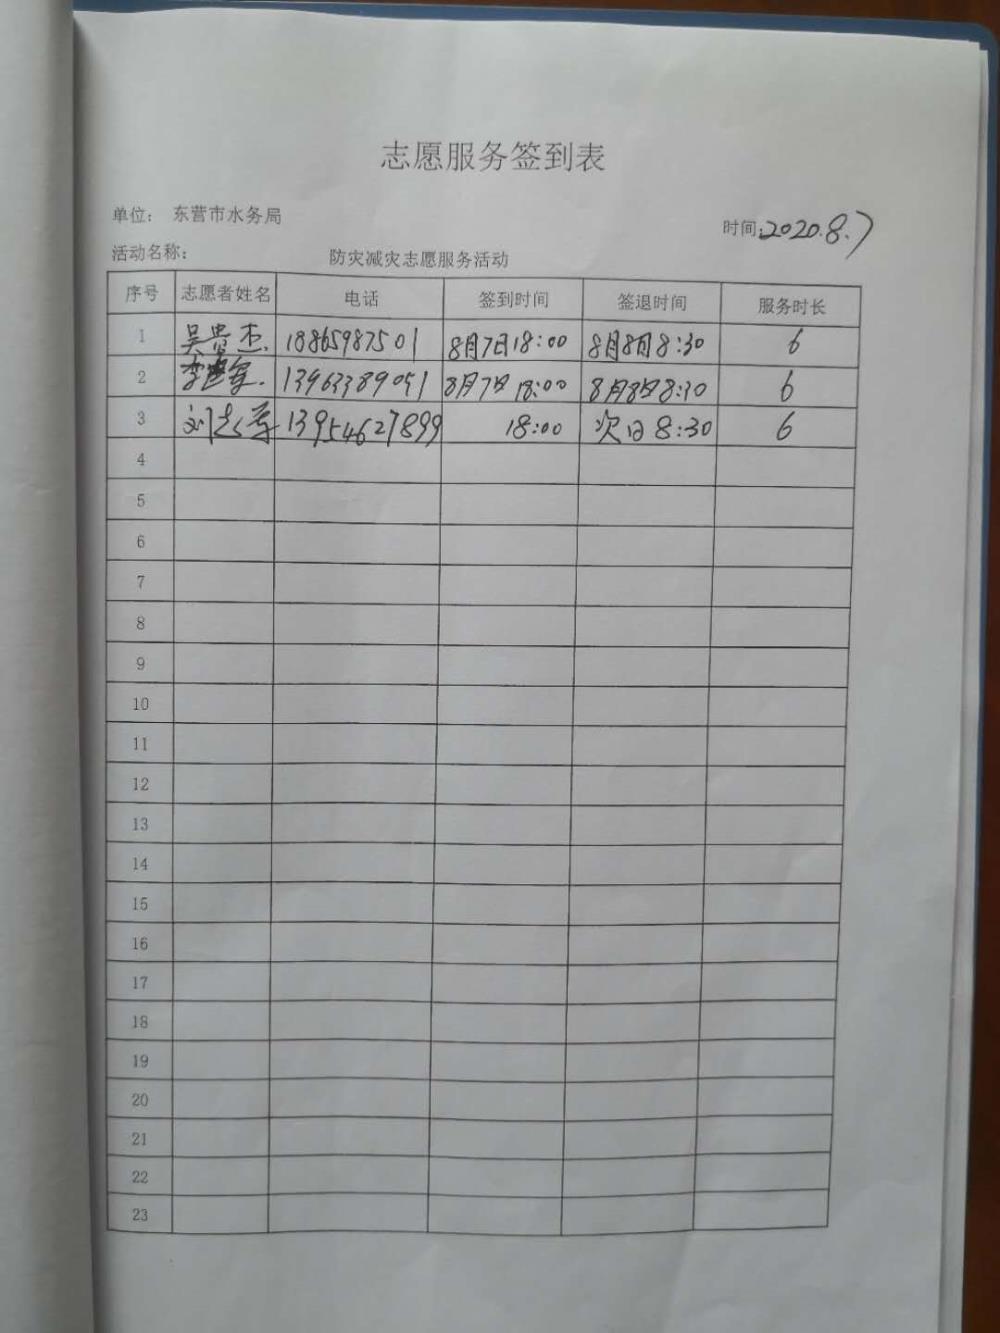 志愿服务签到表
单位: 东营市水务局
时间:2020.8.7
活动名称: 防灾减灾志愿服务活动
序号 志愿者姓名 电话 签到时间 签退时间 服务时长
1 吴贵杰 18865987501 8月7日18:00 8月8日8:30 6
2 李建军 13963389051 8月7日18:00 8月8日8:30 6
3 刘志 13954627899 18:00 次日8:30 6
4
5
6
7
8
9
10
11
12
13
14
15
16
17
18
19
20
21
22
23